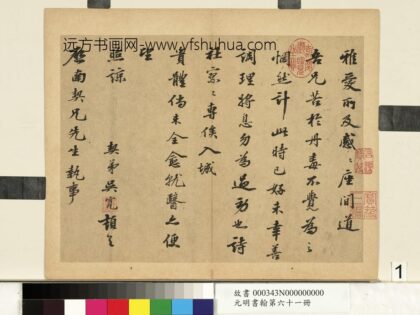 远方书画网-www.yfshuhua.com
雅愛所及感〻座間道
吾兄苦於丹毒不覺為之
惘然計此時已好未幸善
調理将息勿為過動也詩
社寥〻專俟入城
貴體倘未全愈就醫亦便
望
照諒 契弟吳寬頓首
啓南契兄先生執事
1
故書 000343N000000000
元明書翰第六十一冊